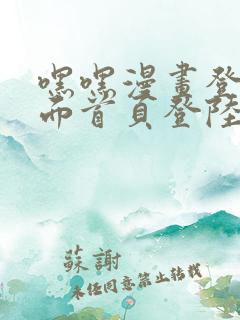 嘿嘿漫畫登
面首頁登陸
蘇謝
未经同意禁止转载